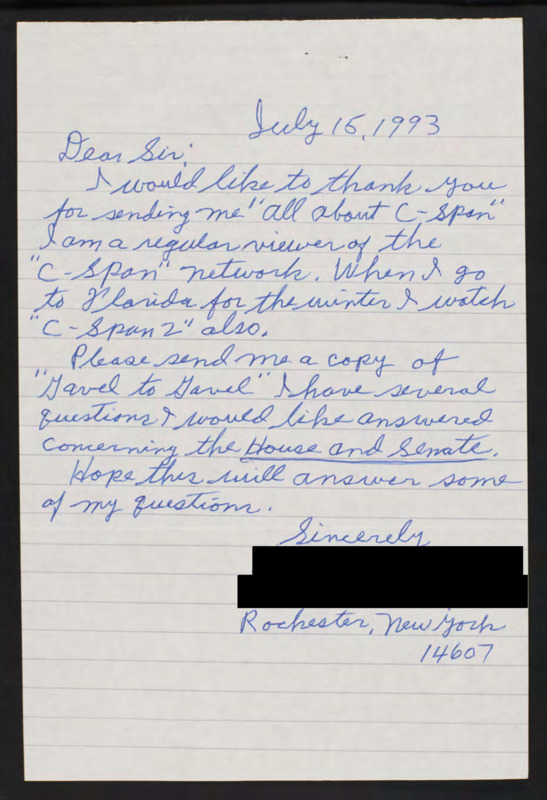 July 15, 1993
Dear Sir:
I would like to thank you
for sending me "all about C-Span"
I am a regular viewer of the
"C-Span" network. When I go
to Florida for the winter I watch
"C-Span 2" also.
Please send me a copy of
"Gavel to Gavel" I have several
questions I would like answered
concerning the House and Senate.
Hope this will answer some
of my questions.
Sincerely
Rochester, New York
14607